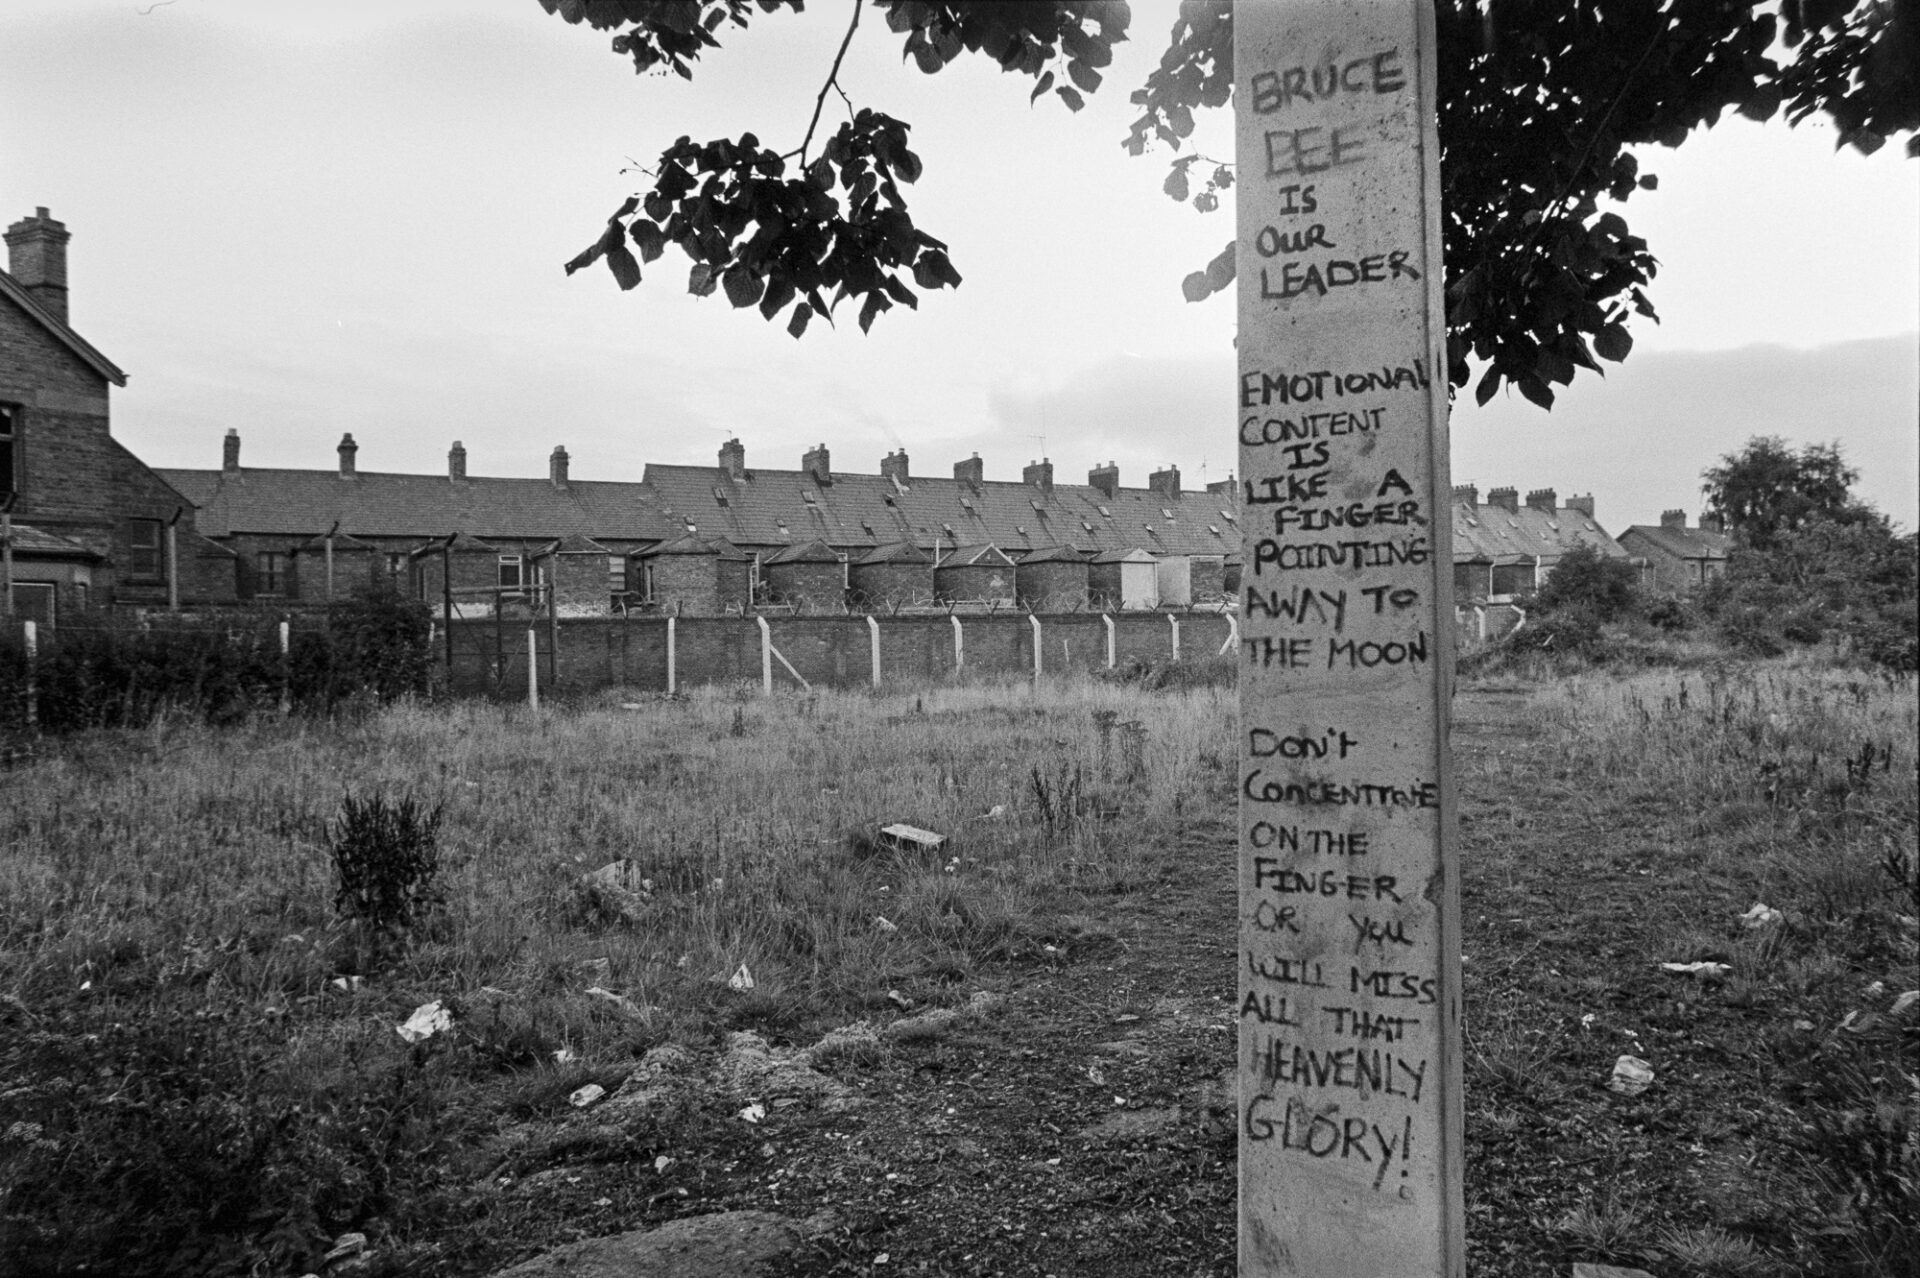 BRUCE
LEE
IS
OUR
LEADER
EMOTIONAL
CONTENT
IS
LIKE A
FINGER
POINTING
AWAY TO
THE MOON
DON't
CONCENTRATE
ON THE
FINGER
OR YOU
WILL MISS
ALL THAT
HEAVENLY
GLORY!